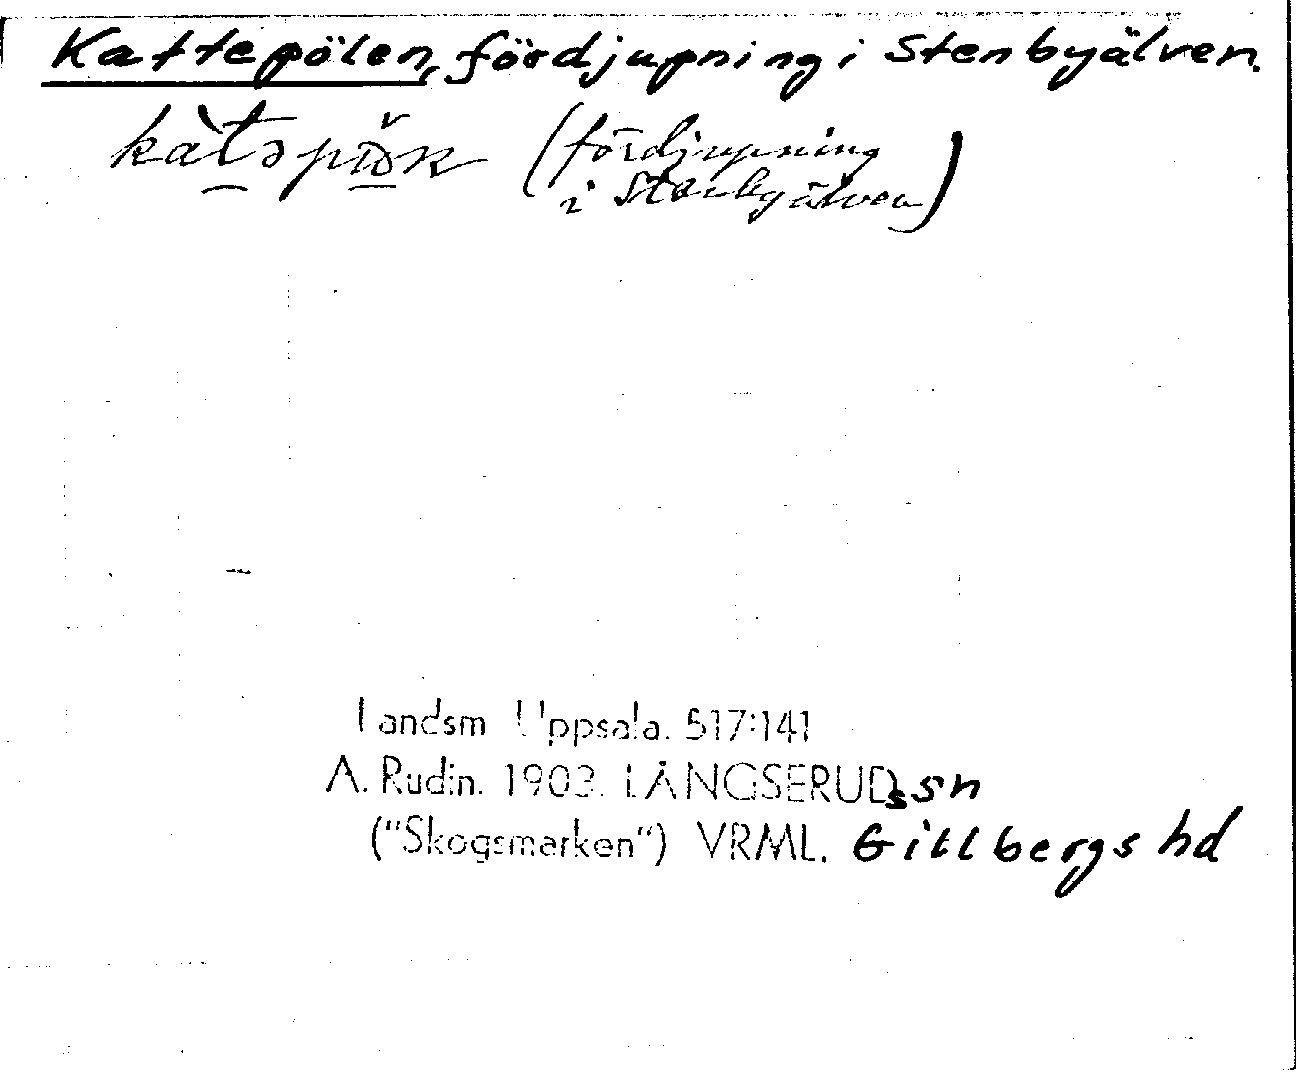 Kattepölen, fördjupning i Stenbyälven.
(fördjupning
i Stenbyälven)
Landsm Uppsala. 517:141
A. Rudin. 1903. LÅNGSERUDs sn
("Skogsmarken") VRML. Gillbergs hd